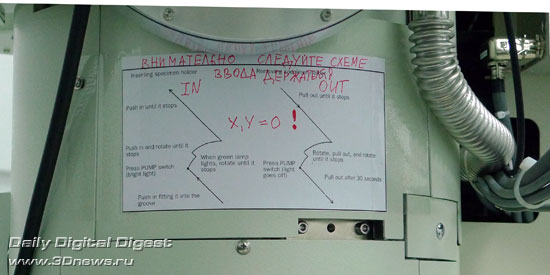 ВНИМАТЕЛЬНО СЛЕДУЙТЕ СХЕМЕ
ВВОДА ДЕРЖАТЕЛЯ
Inserting specimen holder
IN
OUT
Push in until it stops
Pull out until it stops
X,Y=0 !
Push in and rotate until it
stops
Press PUMP switch
(bright light)
When green lamp
lights, rotate until it
stops
Press PUMP
switch (light
goes off)
Rotate, pull out, and rotate
until it stops
Push in fitting it into the
groove
Pull out after 30 seconds
Daily Digital Digest
www.3Dnews.ru